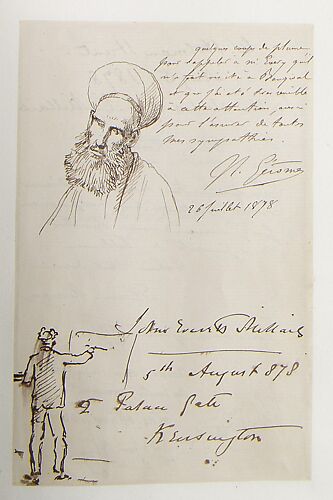 quelques coups de plume
pour rappeler à Mr Every qu'il
m'a fait visite à Bougival
et que j'ai été très sensible
à cette attention, aussi
pour l'assurer de toutes
mes sympathies.
Gérome
26 juillet 1878
John Everett Millais
5th August 878
2 Palace Gate
Kensington